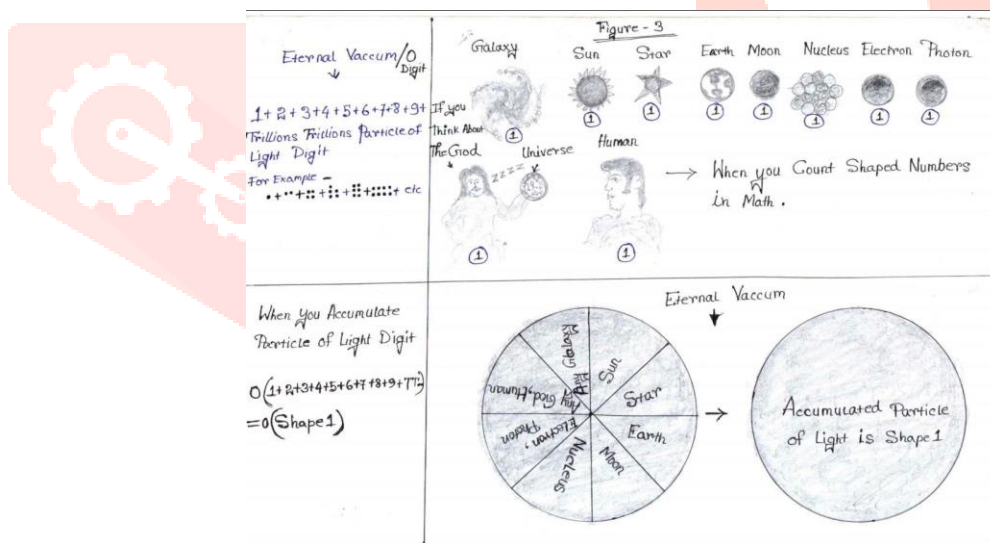 Figure - 3
Eternal Vaccum/0
Digit
1+2+3+4+5+6+7+8+9+
Trillions Trillions Particle of
Light Digit
For Example -
+ etc
If you
Think About
The God
Galaxy
1
Sun
1
Star
1
Earth
1
Moon
1
Nucleus
1
Electron
1
Photon
1
zzzz
Universe
1
Human
1
When you Count Shaped Numbers
in Math.
When you Accumulate
Particle of Light Digit
0(1+2+3+4+5+6+7+8+9+TT)
=0(Shape1)
Eternal Vaccum
Sun
Star
Earth
Moon
Nucleus
Electron,
Photon
Any God, Human
Accumulated Particle
of Light is Shape1